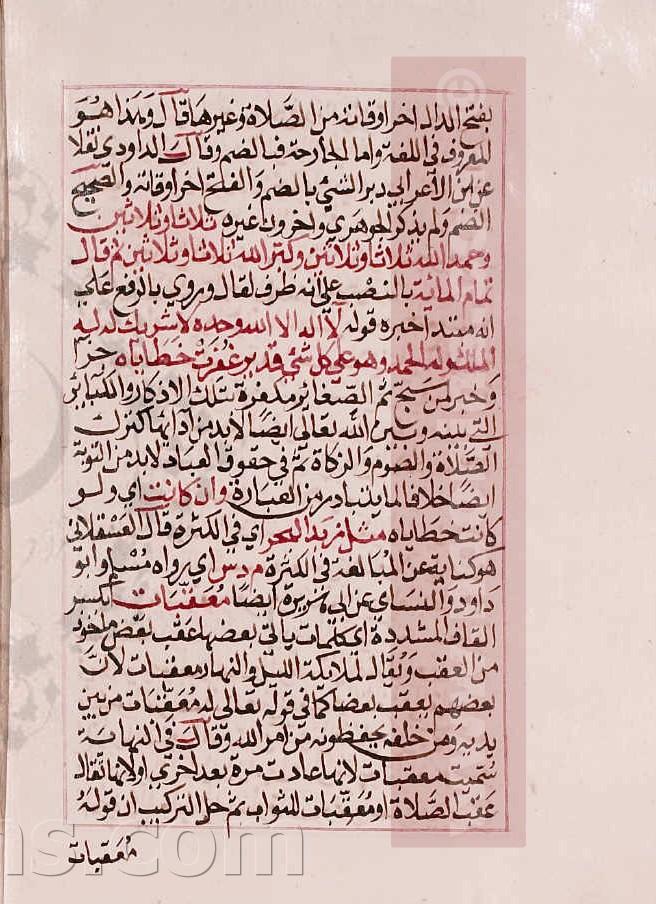 بفتح الدال اخر اوقاته من الصلاة وغيرها قال وهذا هو
المعروف في اللغة واما الجارحة فبالضم وقال الداودي نقلا
عن ابن الاعرابي دبر الشئ بالضم والفتح اخر اوقاته والصحيح
الضم ولم يذكر الجوهري واخرون غيره ثلاثا وثلاثين
وحمد الله ثلاثا وثلاثين وكبر الله ثلاثا وثلاثين ثم قال
تمام المائة بالنصب على انه ظرف لقال وروي بالرفع على
انه مبتدا خبره قوله لا اله الا الله وحده لا شريك له له
الملك وله الحمد وهو على كل شئ قدير غفرت خطاياه جزآ
وخبر لمن سبح ثم الصغائر مكفرة بتلك الاذكار والكبائر
التي بينه وبين الله تعالى ايضا لا بد من آدابها كترك
الصلاة والصوم والزكاة ثم في حقوق العباد لا بد من التوبة
ايضا خلافا لما يتبادر من العبارة وان كانت اي ولو
كانت خطاياه مثل زبد البحر اي في الكثرة قال العسقلاني
هو كناية عن المبالغة في الكثرة م د س اي رواه مسلم وابو
داود والنساي عن ابي هريرة ايضا معقبات بكسر
القاف المشددة اي كلمات ياتي بعضها عقب بعض ماخوذ
من العقب ويقال لملايكة الليل والنهار معقبات لان
بعضهم يعقب بعضا كما في قوله تعالى له معقبات من بين
يديه ومن خلفه يحفظونه من امر الله وقال في النهاية
سميت معقبات لانها عادت مرة بعد اخرى او لانها تقال
عقب الصلاة او معقبات للثواب ثم حل التركيب ان قوله
معقبات
ns.com